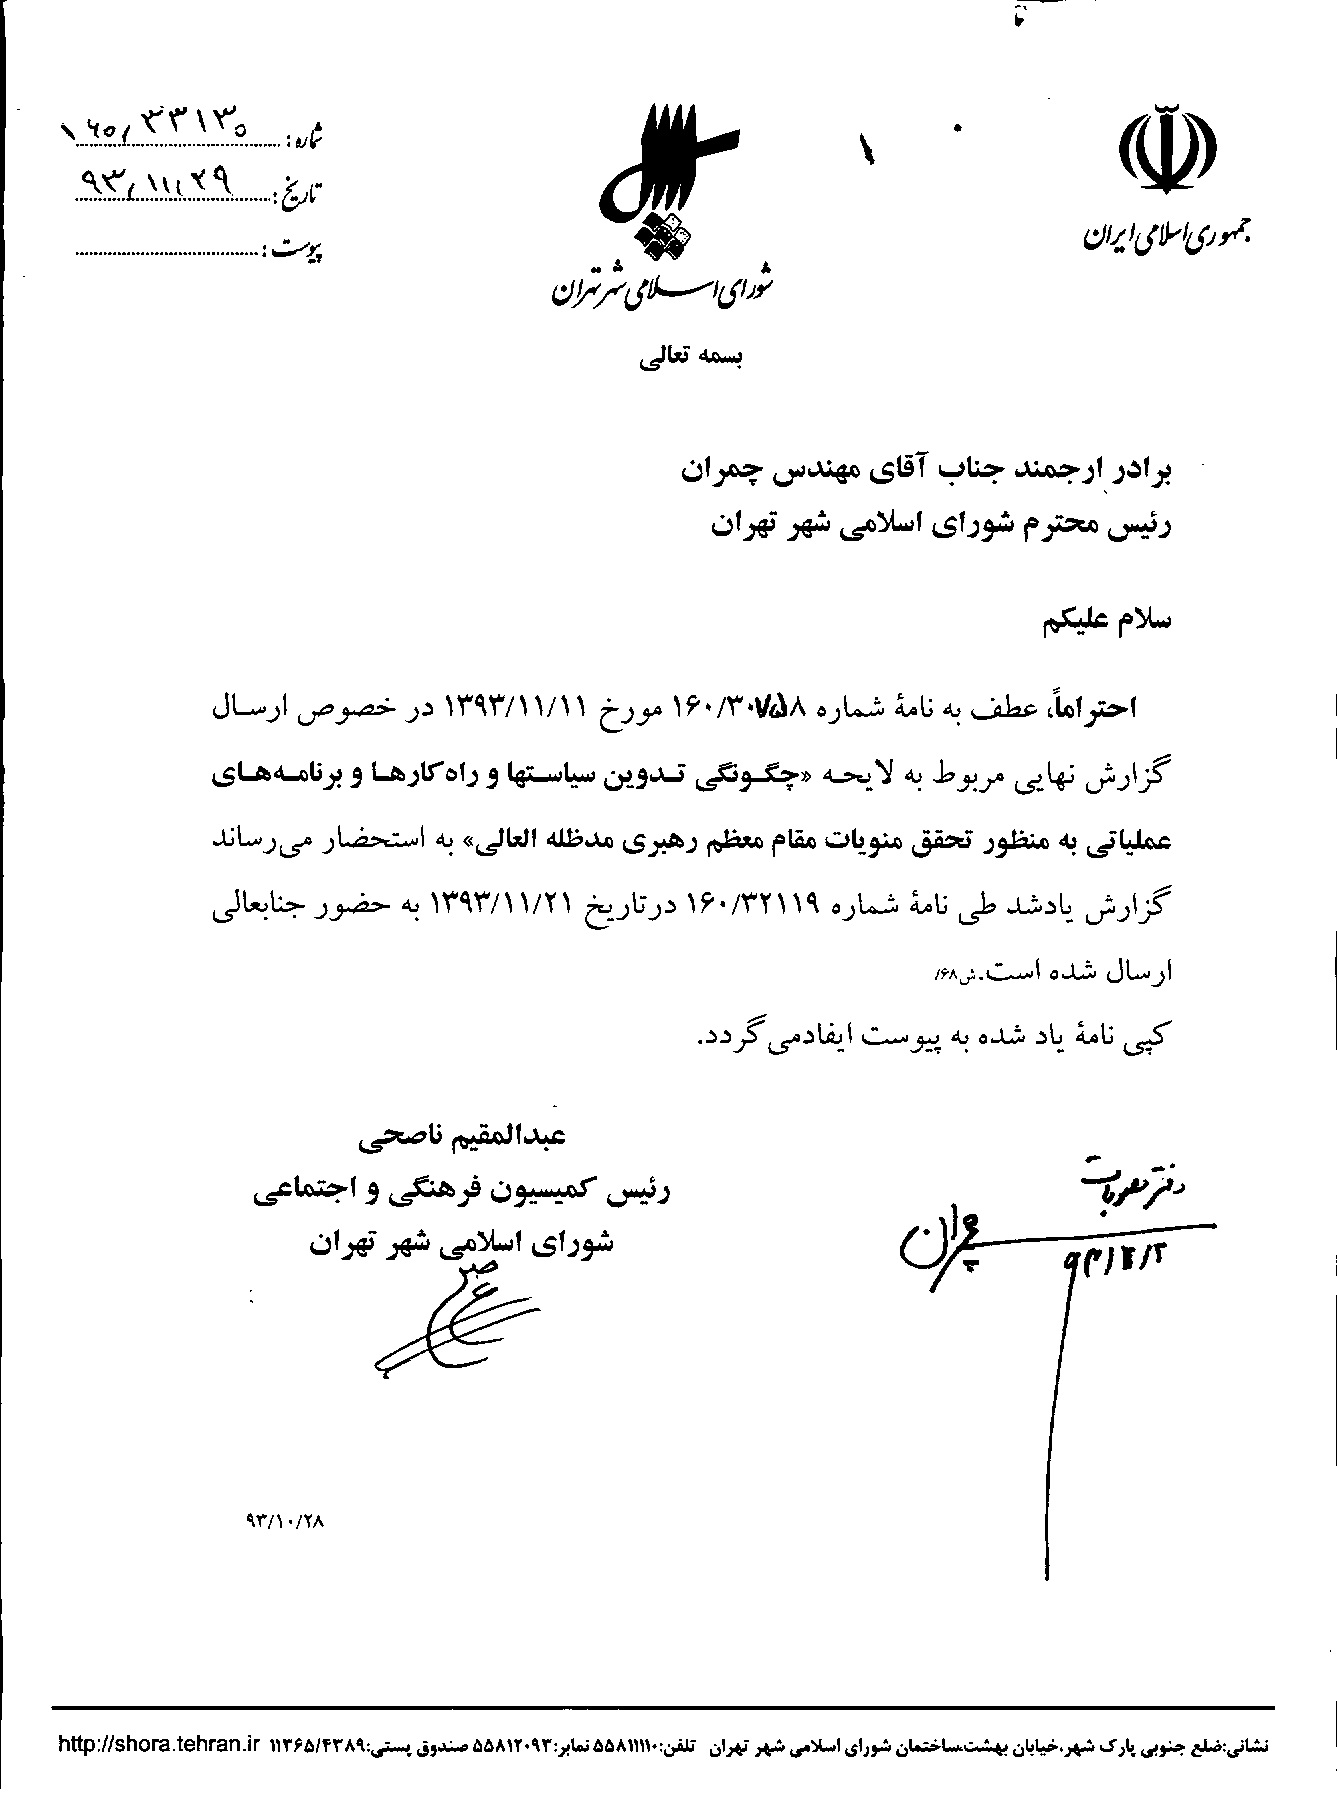 جمهوری اسلامی ایران
شورای اسلامی شهر تهران
شماره: ۱۶۰/۳۳۱۳۵
تاریخ: ۹۳/۱۱/۲۹
پیوست:
بسمه تعالی
برادر ارجمند جناب آقای مهندس چمران
رئیس محترم شورای اسلامی شهر تهران
سلام علیکم
احتراماً، عطف به نامهٔ شماره ۱۶۰/۳۰۷۵۸ مورخ ۱۳۹۳/۱۱/۱۱ در خصوص ارسال
گزارش نهایی مربوط به لایحه «چگونگی تدوین سیاستها و راه‌کارها و برنامه‌های
عملیاتی به منظور تحقق منویات مقام معظم رهبری مدظله العالی» به استحضار می‌رساند
گزارش یادشد طی نامهٔ شماره ۱۶۰/۳۲۱۱۹ درتاریخ ۱۳۹۳/۱۱/۲۱ به حضور جنابعالی
ارسال شده است.ش۶۸/
کپی نامهٔ یاد شده به پیوست ایفادمی‌گردد.
عبدالمقیم ناصحی
رئیس کمیسیون فرهنگی و اجتماعی
شورای اسلامی شهر تهران
دفتر مصوبات
چمران
۹۳/۱۰/۲۸
نشانی:ضلع جنوبی پارک شهر،خیابان بهشت،ساختمان شورای اسلامی شهر تهران تلفن:۵۵۸۱۱۱۱۰ نمابر:۵۵۸۱۲۰۹۳ صندوق پستی:۱۱۳۶۵/۴۳۸۹ http://shora.tehran.ir